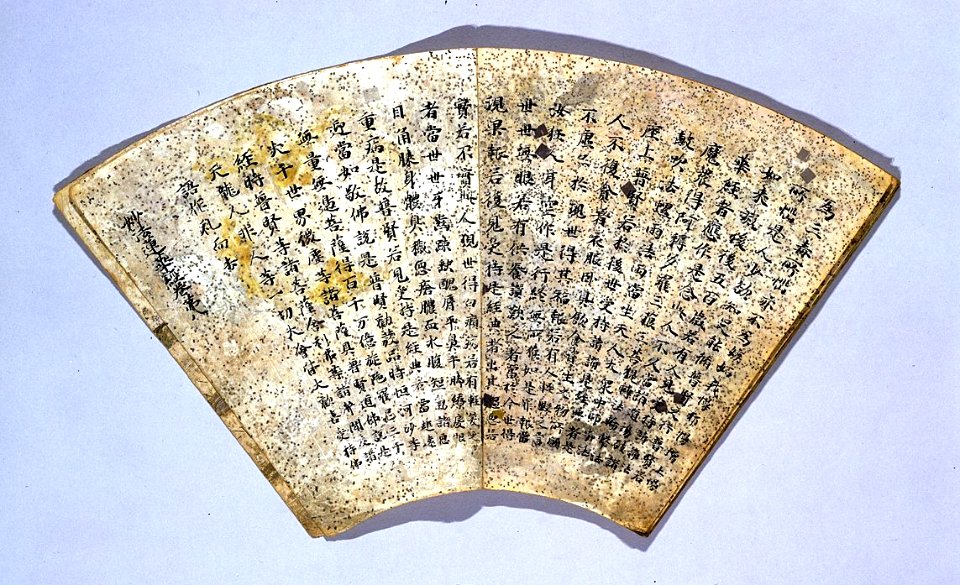 為三毒所惱亦不為嫉妬我慢邪慢增上慢
所惱是人少欲知足能修普賢之行普賢若
如來滅後後五百歲若有人見受持讀誦法
華經者應作是念此人不久當詣道場破諸
魔眾得阿耨多羅三藐三菩提轉法輪擊法
鼓吹法螺雨法雨當坐天人大眾中師子法
座上普賢若於後世受持讀誦是經典者是
人不復貪著衣服臥具飲食資生之物所願
不虛亦於現世得其福報若有人輕毀之言
汝狂人耳空作是行終無所獲如是罪報當
世世無眼若有供養讚歎之者當於今世得
現果報若復見受持是經典者出其過惡若
實若不實此人現世得白癩病若有輕笑之
者當世世牙齒踈缺醜脣平鼻手脚繚戾眼
目角睞身體臭穢惡瘡膿血水腹短氣諸惡
重病是故普賢若見受持是經典者當起遠
迎當如敬佛說是普賢勸發品時恒河沙等
無量無邊菩薩得百千万億旋陀羅尼三千
大千世界微塵等諸菩薩具普賢道佛說是
經時普賢等諸菩薩舍利弗等諸聲聞及諸
天龍人非人等一切大會皆大歡喜受持佛
語作礼而去
妙法蓮華經卷第八